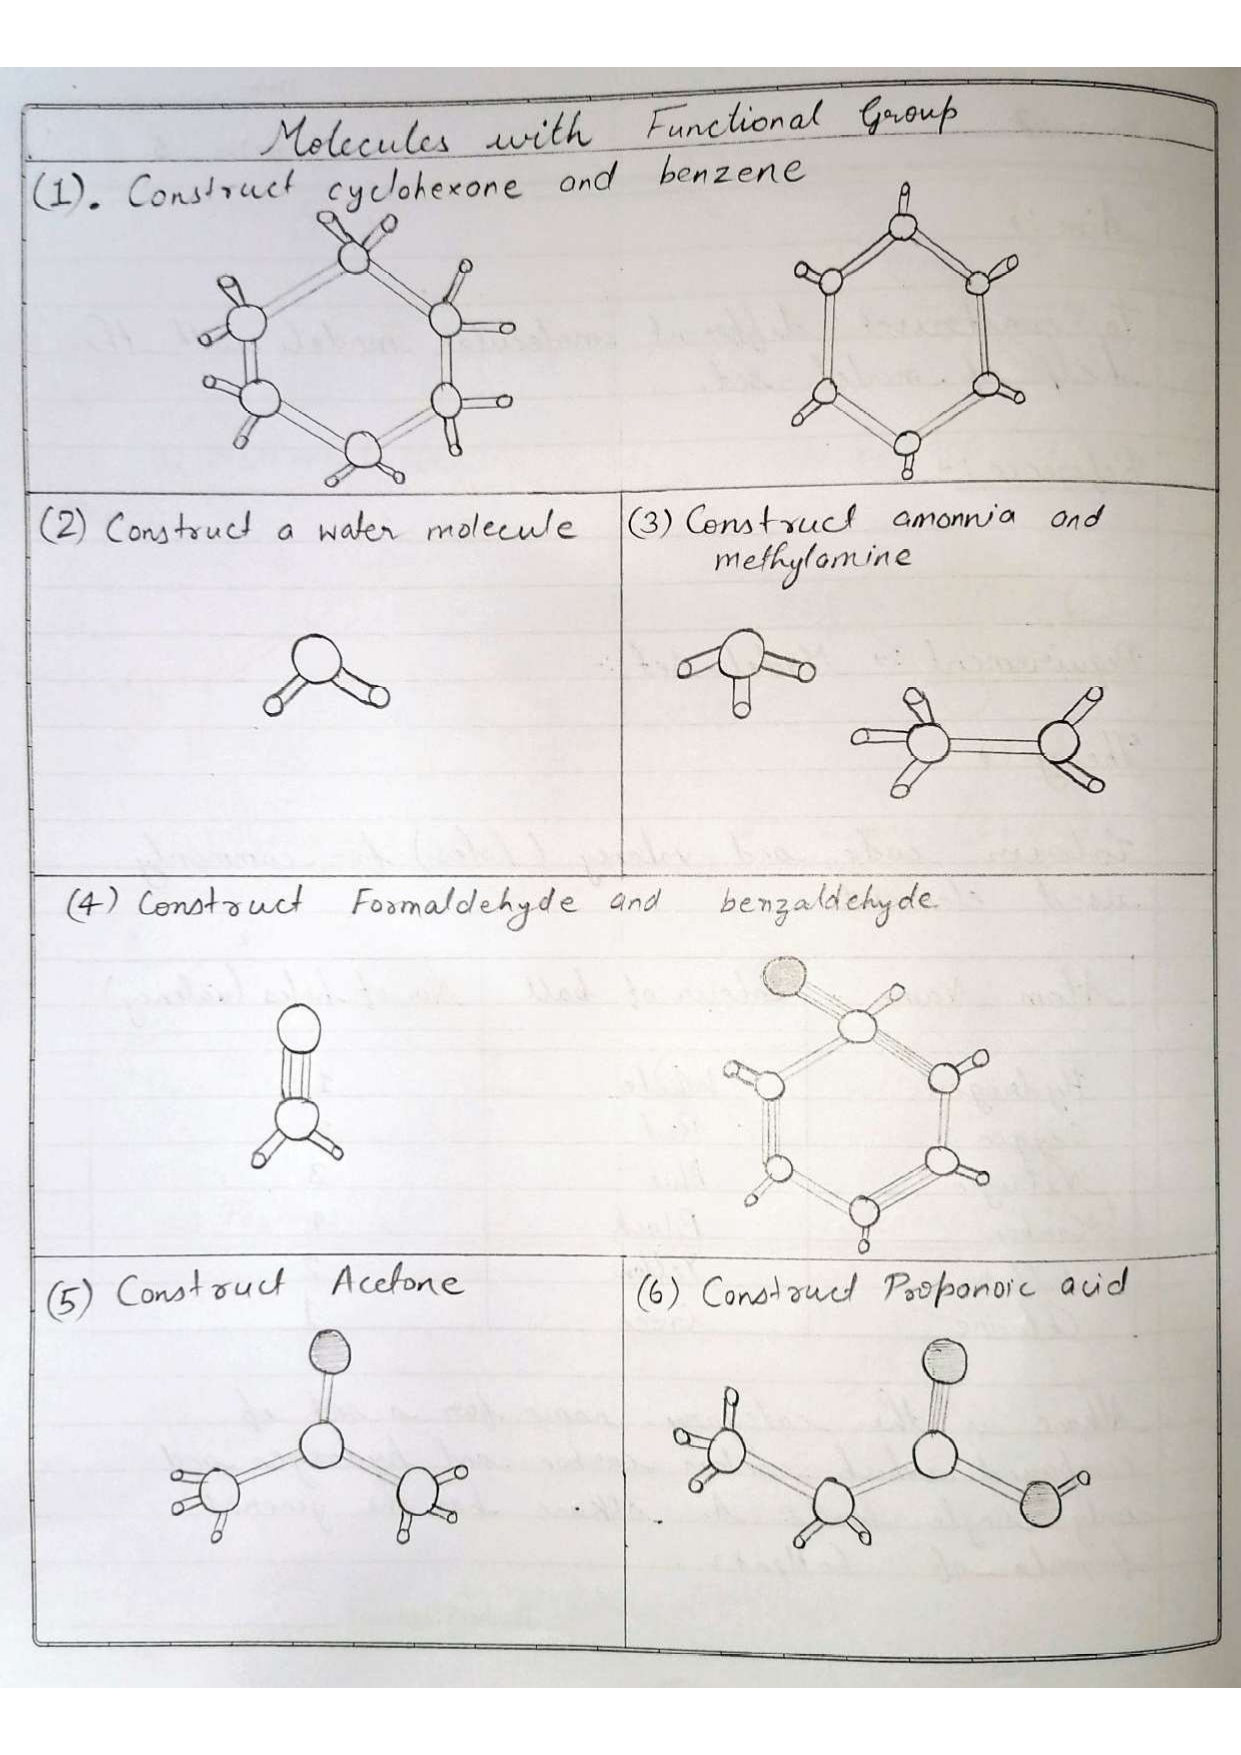 Molecules with Functional Group
(1). Construct cyclohexone and benzene
(2) Construct a water molecule
(3) Construct amonnia and
methylamine
(4) Construct Formaldehyde and benzaldehyde.
(5) Construct Acetone
(6) Construct Propanoic acid